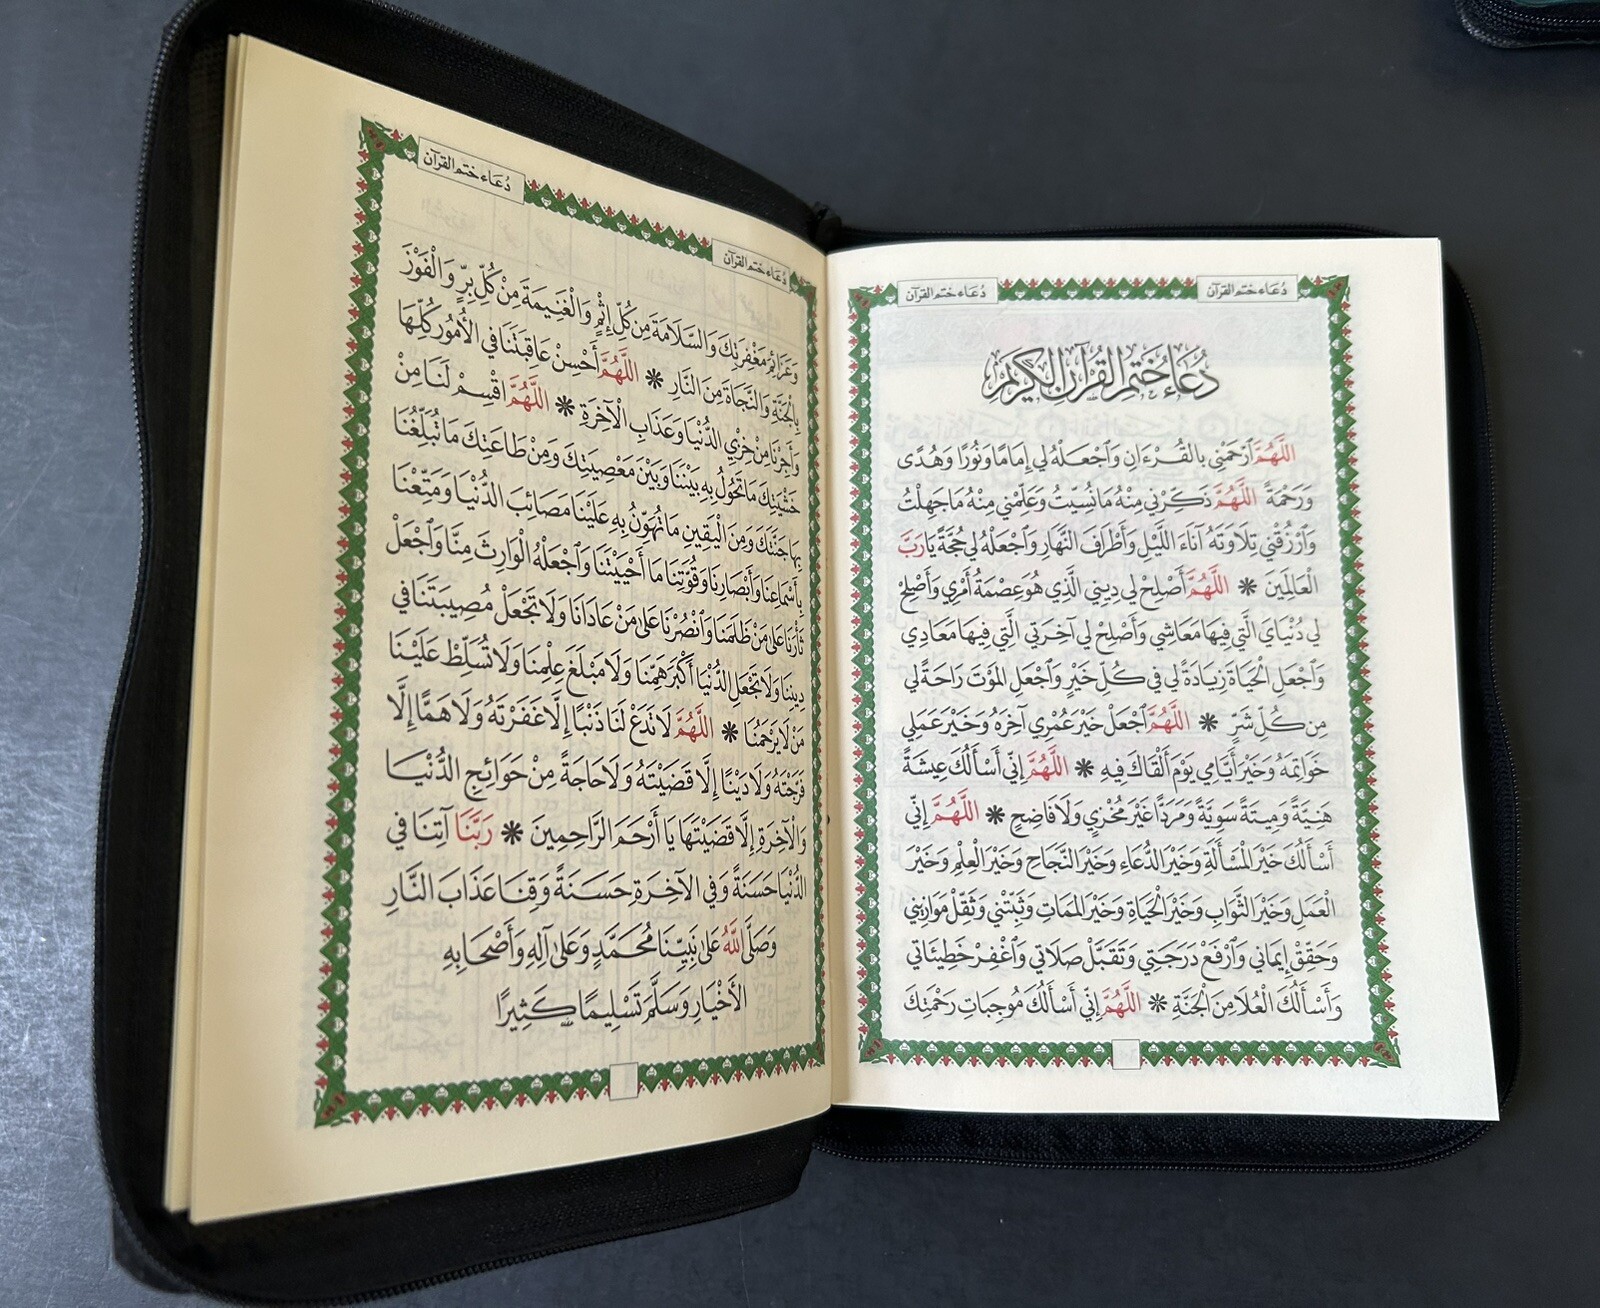 دُعَاء ختم القرآن
دُعَاء ختم القرآن
دُعَاءُ خَتْمِ القُرْآنِ الكَرِيمِ
اللَّهُمَّ ٱرْحَمْنِي بالقُرْءَانِ وَٱجْعَلهُ لِي إِمَامًا وَنُورًا وَهُدًى
وَرَحْمَةً اللَّهُمَّ ذَكِّرْنِي مِنْهُ مَانُسِّيتُ وَعَلِّمْنِي مِنْهُ مَاجَهِلْتُ
وَٱرْزُقْنِي تِلَاوَتَهُ آنَاءَ اللَّيْلِ وَأَطْرَافَ النَّهَارِ وَٱجْعَلْهُ لِي حُجَّةً يَارَبَّ
الْعَالَمِينَ * اللَّهُمَّ أَصْلِحْ لِي دِينِي الَّذِي هُوَعِصْمَةُ أَمْرِي وَأَصْلِحْ
لِي دُنْيَايَ الَّتِي فِيهَا مَعَاشِي وَأَصْلِحْ لِي آخِرَتِي الَّتِي فِيهَا مَعَادِي
وَٱجْعَلِ الْحَيَاةَ زِيَادَةً لِي فِي كُلِّ خَيْرٍ وَٱجْعَلِ المَوْتَ رَاحَةً لِي
مِن كُلِّ شَرٍّ * اللَّهُمَّ ٱجْعَلْ خَيْرَ عُمْرِي آخِرَهُ وَخَيْرَ عَمَلِي
خَوَاتِمَهُ وَخَيْرَ أَيَّامِي يَوْمَ أَلْقَاكَ فِيهِ * اللَّهُمَّ إِنِّي أَسْأَلُكَ عِيشَةً
هَنِيَّةً وَمِيتَةً سَوِيَّةً وَمَرَدًّا غَيْرَ مُخْزِي وَلَا فَاضِحٍ * اللَّهُمَّ إِنِّي
أَسْأَلُكَ خَيْرَ المَسْأَلَةِ وَخَيْرَ الدُّعَاءِ وَخَيْرَ النَّجَاحِ وَخَيْرَ الْعِلْمِ وَخَيْرَ
الْعَمَلِ وَخَيْرَ الثَّوَابِ وَخَيْرَ الْحَيَاةِ وَخَيْرَ المَمَاتِ وَثَبِّتْنِي وَثَقِّلْ مَوَازِينِي
وَحَقِّقْ إِيمَانِي وَٱرْفَعْ دَرَجَتِي وَتَقَبَّلْ صَلَاتِي وَٱغْفِرْ خَطِيئَاتِي
وَأَسْأَلُكَ الْعُلَا مِنَ الْجَنَّةِ * اللَّهُمَّ إِنِّي أَسْأَلُكَ مُوجِبَاتِ رَحْمَتِكَ
دُعَاء ختم القرآن
دُعَاء ختم القرآن
وَعَزَائِمَ مَغْفِرَتِكَ وَالسَّلَامَةَ مِن كُلِّ إِثْمٍ وَالْغَنِيمَةَ مِنْ كُلِّ بِرٍّ وَالْفَوْزَ
بِالْجَنَّةِ وَالنَّجَاةَ مِنَ النَّارِ * اللَّهُمَّ أَحْسِنْ عَاقِبَتَنَا فِي الْأُمُورِ كُلِّهَا
وَأَجِرْنَا مِنْ خِزْيِ الدُّنْيَا وَعَذَابِ الْآخِرَةِ * اللَّهُمَّ اقْسِمْ لَنَا مِنْ
خَشْيَتِكَ مَا تَحُولُ بِهِ بَيْنَنَا وَبَيْنَ مَعْصِيَتِكَ وَمِنْ طَاعَتِكَ مَا تُبَلِّغُنَا
بِهَا جَنَّتَكَ وَمِنَ الْيَقِينِ مَا تُهَوِّنُ بِهِ عَلَيْنَا مَصَائِبَ الدُّنْيَا وَمَتِّعْنَا
بِأَسْمَاعِنَا وَأَبْصَارِنَا وَقُوَّتِنَا مَا أَحْيَيْتَنَا وَٱجْعَلْهُ الْوَارِثَ مِنَّا وَٱجْعَلْ
ثَأْرَنَا عَلَى مَنْ ظَلَمَنَا وَٱنْصُرْنَا عَلَى مَنْ عَادَانَا وَلَا تَجْعَلْ مُصِيبَتَنَا فِي
دِينِنَا وَلَا تَجْعَلِ الدُّنْيَا أَكْبَرَ هَمِّنَا وَلَا مَبْلَغَ عِلْمِنَا وَلَا تُسَلِّطْ عَلَيْنَا
مَنْ لَا يَرْحَمُنَا * اللَّهُمَّ لَا تَدَعْ لَنَا ذَنْبًا إِلَّا غَفَرْتَهُ وَلَا هَمًّا إِلَّا
فَرَّجْتَهُ وَلَا دَيْنًا إِلَّا قَضَيْتَهُ وَلَا حَاجَةً مِنْ حَوَائِجِ الدُّنْيَا
وَالْآخِرَةِ إِلَّا قَضَيْتَهَا يَا أَرْحَمَ الرَّاحِمِينَ * رَبَّنَا آتِنَا فِي
الدُّنْيَا حَسَنَةً وَفِي الآخِرَةِ حَسَنَةً وَقِنَا عَذَابَ النَّارِ
وَصَلَّى اللَّهُ عَلَى نَبِيِّنَا مُحَمَّدٍ وَعَلَى آلِهِ وَأَصْحَابِهِ
الأَخْيَارِ وَسَلَّمَ تَسْلِيمًا كَثِيرًا